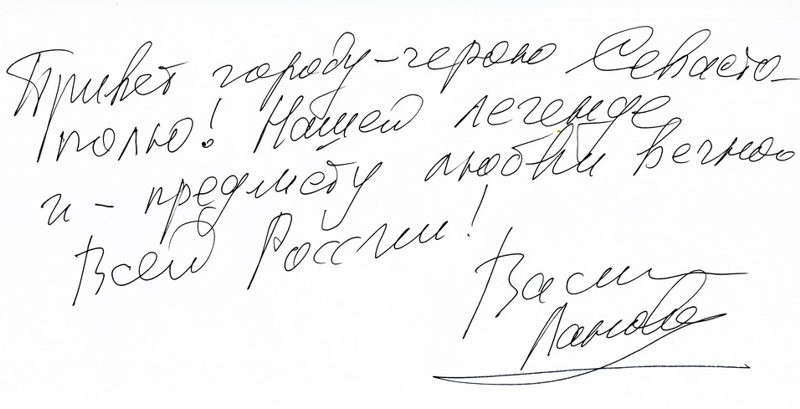 Привет городу-герою Севасто-
полю! Нашей легенде
и - предмету любви вечной
Всей России!
Васи
Лановой